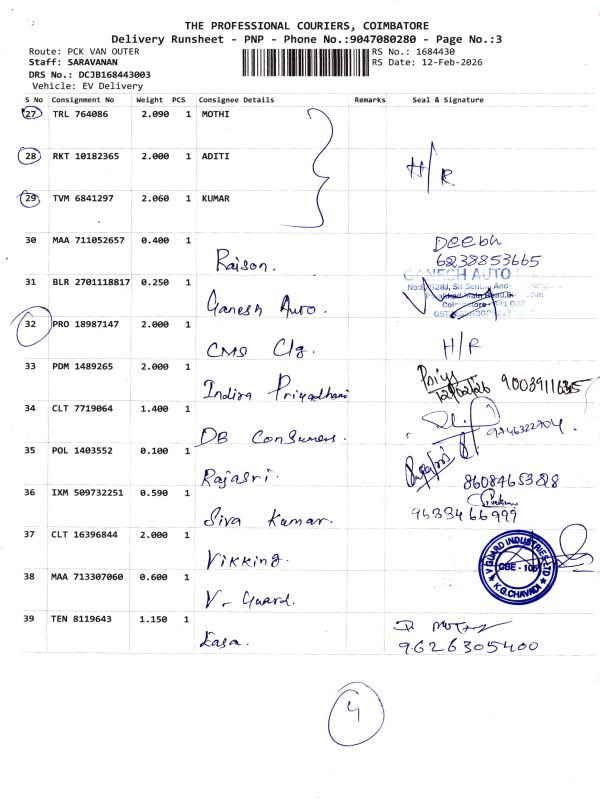 THE PROFESSIONAL COURIERS, COIMBATORE
Delivery Runsheet - PNP - Phone No.:9047080280 - Page No.:3
Route: PCK VAN OUTER RS No.: 1684430
Staff: SARAVANAN RS Date: 12-Feb-2026
DRS No.: DCJB168443003
Vehicle: EV Delivery
S No Consignment No Weight PCS Consignee Details Remarks Seal & Signature
27 TRL 764086 2.090 1 MOTHI
28 RKT 10182365 2.000 1 ADITI H/R
29 TVM 6841297 2.060 1 KUMAR
30 MAA 711052657 0.400 1 Raison. Deebh
6238853665
31 BLR 2701118817 0.250 1 Ganesh Auto.
GANESH AUTO
32 PRO 18987147 2.000 1 CMS Clg. H/R
33 PDM 1489265 2.000 1 Indira Priyadhani Priya
12/02/26 9003911635
34 CLT 7719064 1.400 1 DB Consumers. 9746322704.
35 POL 1403552 0.100 1 Rajasri.
8608465328
36 IXM 509732251 0.590 1 Siva Kumar.
9633466999
37 CLT 16396844 2.000 1 Vikking.
V GUARD INDUSTRIES LTD
CBE - 105
K.G. CHAVADI
38 MAA 713307060 0.600 1 V- Guard.
39 TEN 8119643 1.150 1 Kasa.
9626305400
4